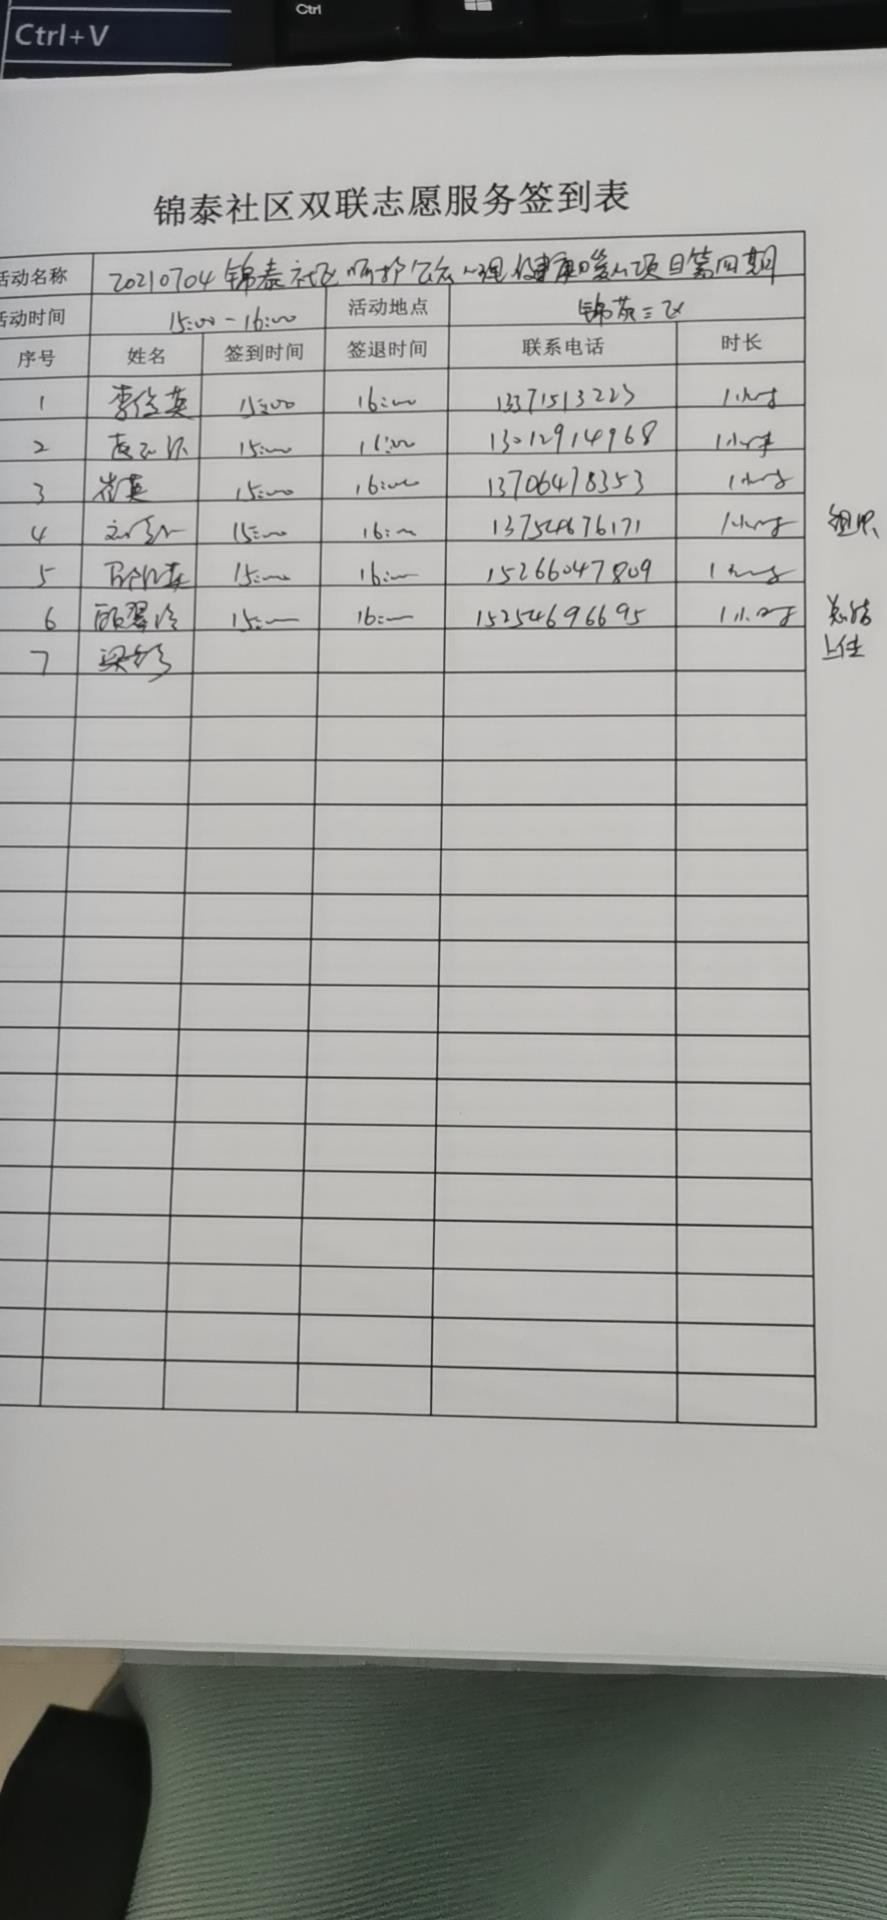 Ctrl+V
Ctrl
锦泰社区双联志愿服务签到表
活动名称 20210704锦泰社区呵护公众心理健康暖心项目第四期
活动时间 15:00-16:00 活动地点 锦苑三区
序号 姓名 签到时间 签退时间 联系电话 时长
1 李俊英 15:00 16:00 13371513223 1小时
2 15:00 16:00 13012914968 1小时
3 崔英 15:00 16:00 13706478353 1小时
4 15:00 16:00 13754676171 1小时 组织
5 15:00 16:00 15266047809 1小时
6 15:00 16:00 15254696695 1小时 总结
7 上传